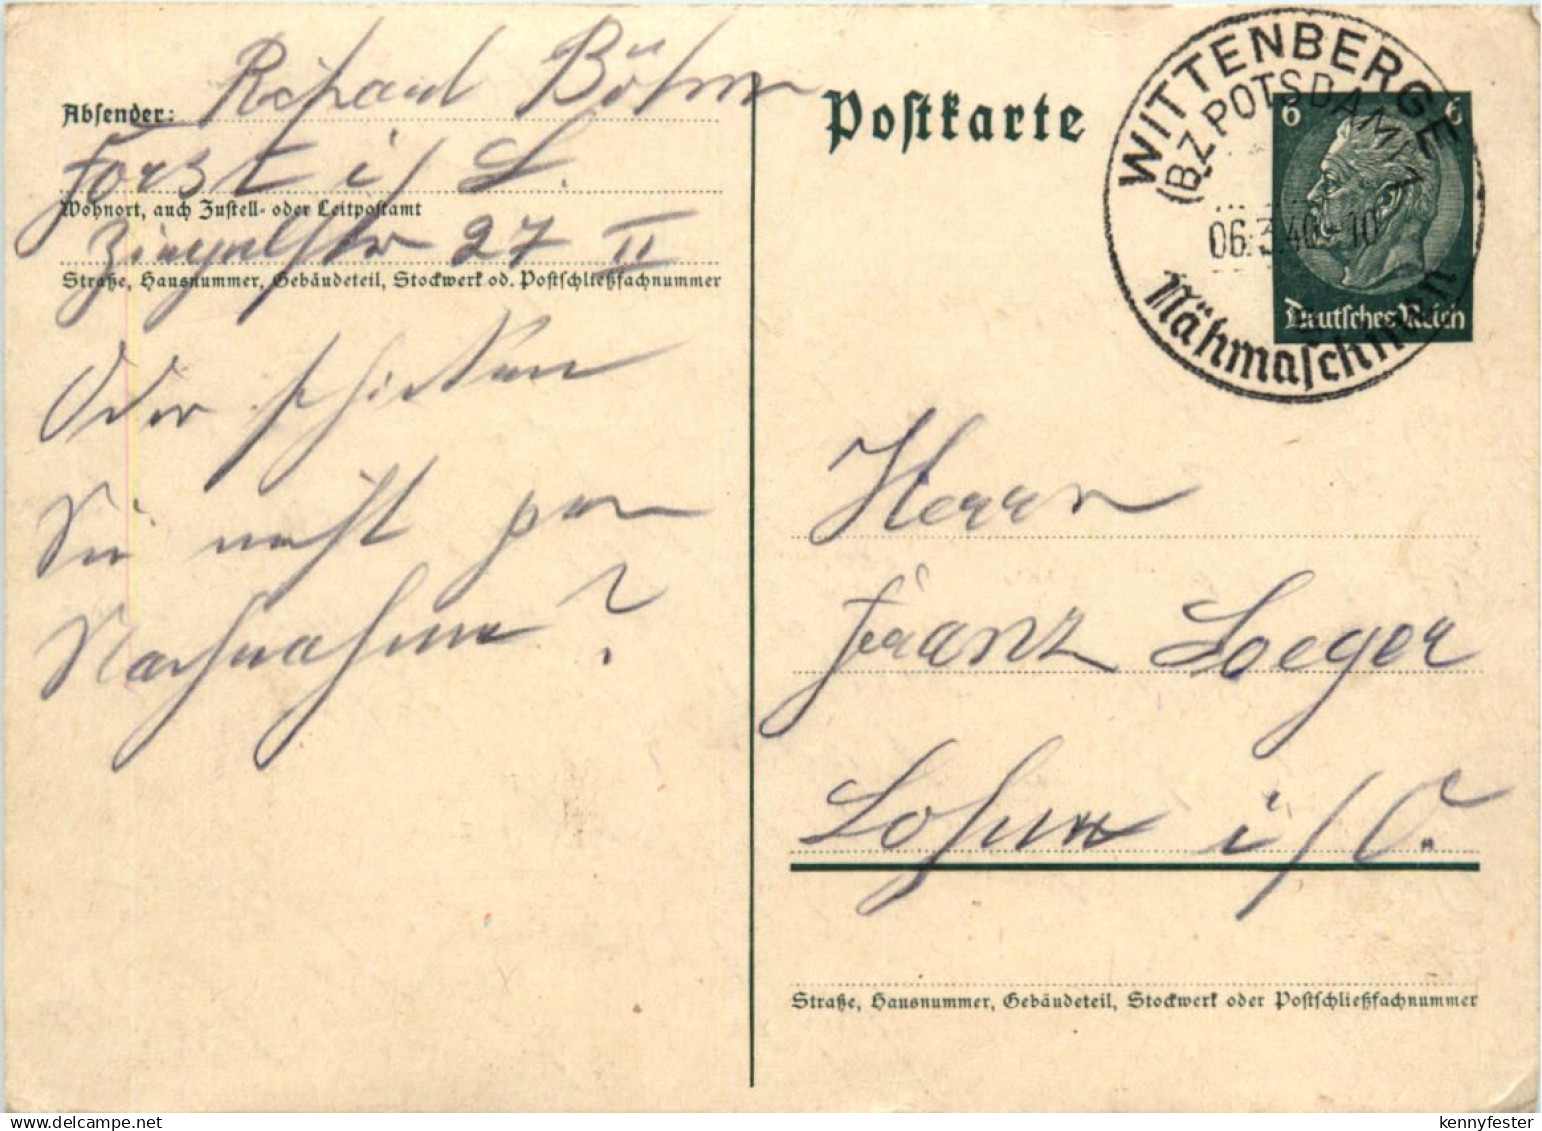 Absender: Richard Böhm
Forst i/ L.
Wohnort, auch Zustell- oder Leitpostamt
Ziegelstr 27 II
Straße, Hausnummer, Gebäudeteil, Stockwerk od. Postschließfachnummer
Oder schicken
Sie nicht per
Nachnahme?
Postkarte
WITTENBERGE
(BZ. POTSDAM) 1
06.3.40-10
Nähmaschinen
6 6
Deutsches Reich
Herrn
Franz Loeger
Lohne i/O.
Straße, Hausnummer, Gebäudeteil, Stockwerk oder Postschließfachnummer
kennyfester